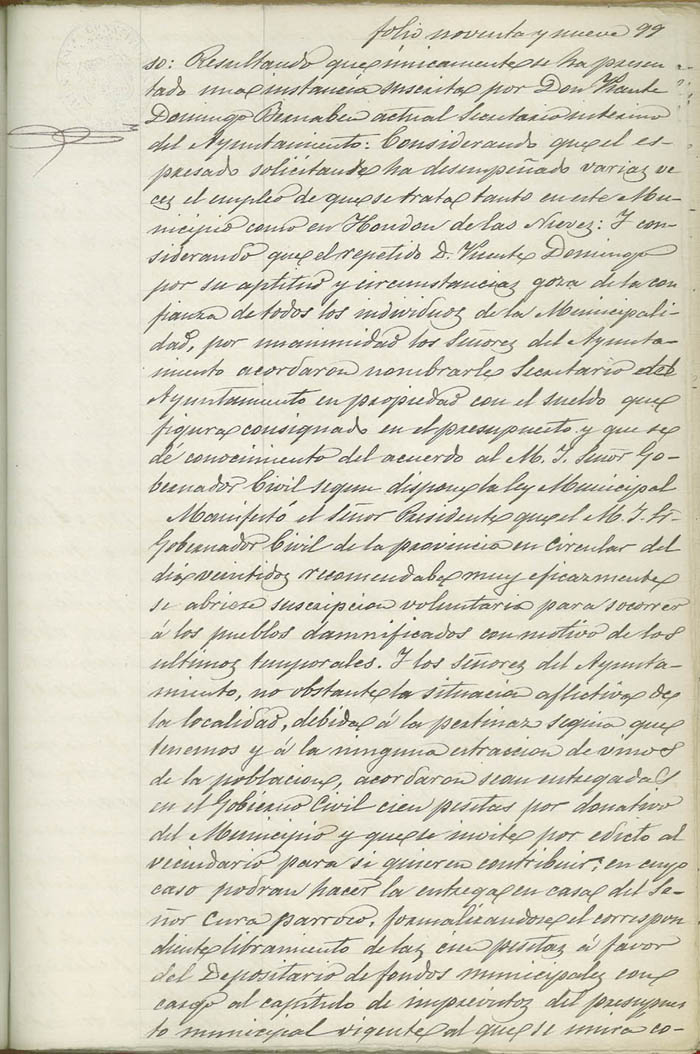 folio noventa y nueve 99
so: Resultando que únicamente se ha presen
tado una instancia suscrita por Don Vicente
Domingo Bernabeu actual Secretario interino
del Ayuntamiento: Considerando que el es-
presado solicitante ha desempeñado varias ve
ces el empleo de que se trata tanto en este Mu-
nicipio como en Hondon de las Nieves: Y con-
siderando que el repetido D. Vicente Domingo
por su aptitud y circunstancias goza de la con
fianza de todos los individuos de la Municipali-
dad, por unanimidad los Señores del Ayunta-
miento acordaron nombrarle Secretario del
Ayuntamiento en propiedad con el sueldo que
figura consignado en el presupuesto y que se
dé conocimiento del acuerdo al M. I. Señor Go-
bernador Civil segun dispone la ley Municipal
Manifestó el Señor Presidente que el M. I. Sr.
Gobernador Civil de la provincia en Circular del
dia veintidos recomendaba muy eficazmente
se abriera suscripcion voluntaria para socorrer
á los pueblos damnificados con motivo de los
ultimos temporales. Y los señores del Ayunta-
miento, no obstante la situacion aflictiva de
la localidad, debida á la pertinaz sequia que
tenemos y á la ninguna estraccion de vinos
de la poblacion, acordaron sean entregadas
en el Gobierno Civil cien pesetas por donativo
del Municipio y que se invite por edicto al
vecindario para si quieren contribuir, en cuyo
caso podran hacer la entrega en casa del Se-
ñor Cura parroco, formalizandose el correspon
diente libramiento de las cien pesetas á favor
del Depositario de fondos municipales con
cargo al capitulo de imprevistos del presupues
to municipal vigente al que se unira co-